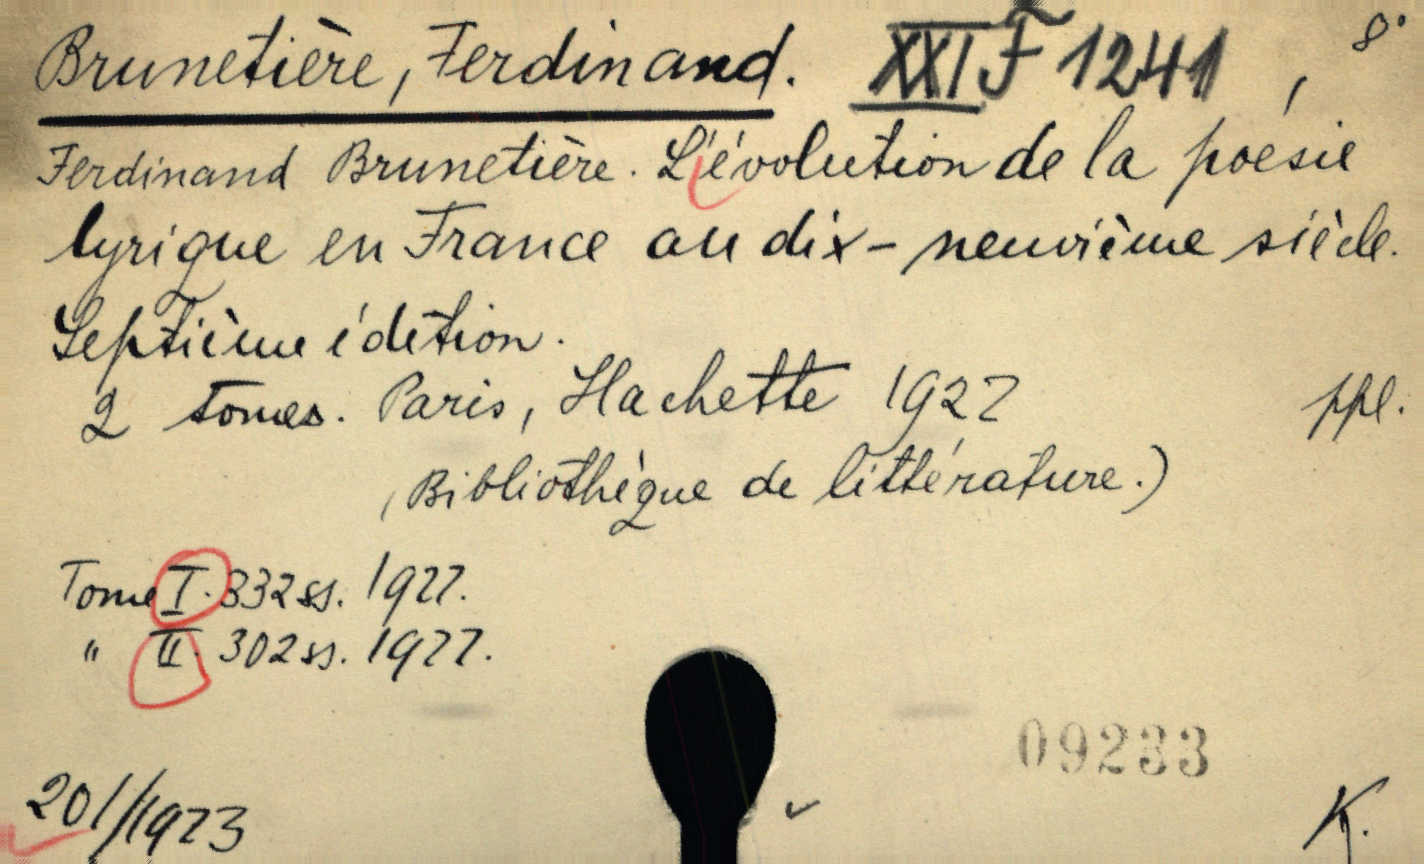 Brunetière, Ferdinand. XXI F 1241, 8°
Ferdinand Brunetière. L'évolution de la poésie
lyrique en France au dix-neuvième siècle.
Septième édition.
2 tomes. Paris, Hachette 1922 ppl.
(Bibliothèque de littérature.)
Tome I. 332 ss. 1922.
" II. 302 ss. 1922.
09233
201/1923 K.